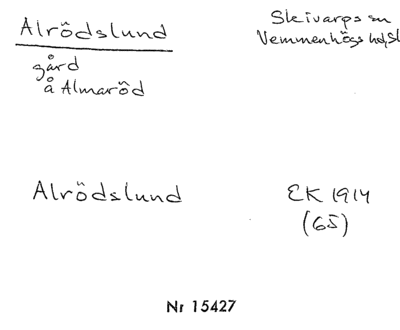 Alrödslund
Skivarps sn
Vemmenhögs hd, Sk
gård
å Almaröd
Alrödslund
EK 1914
(65)
Nr 15427